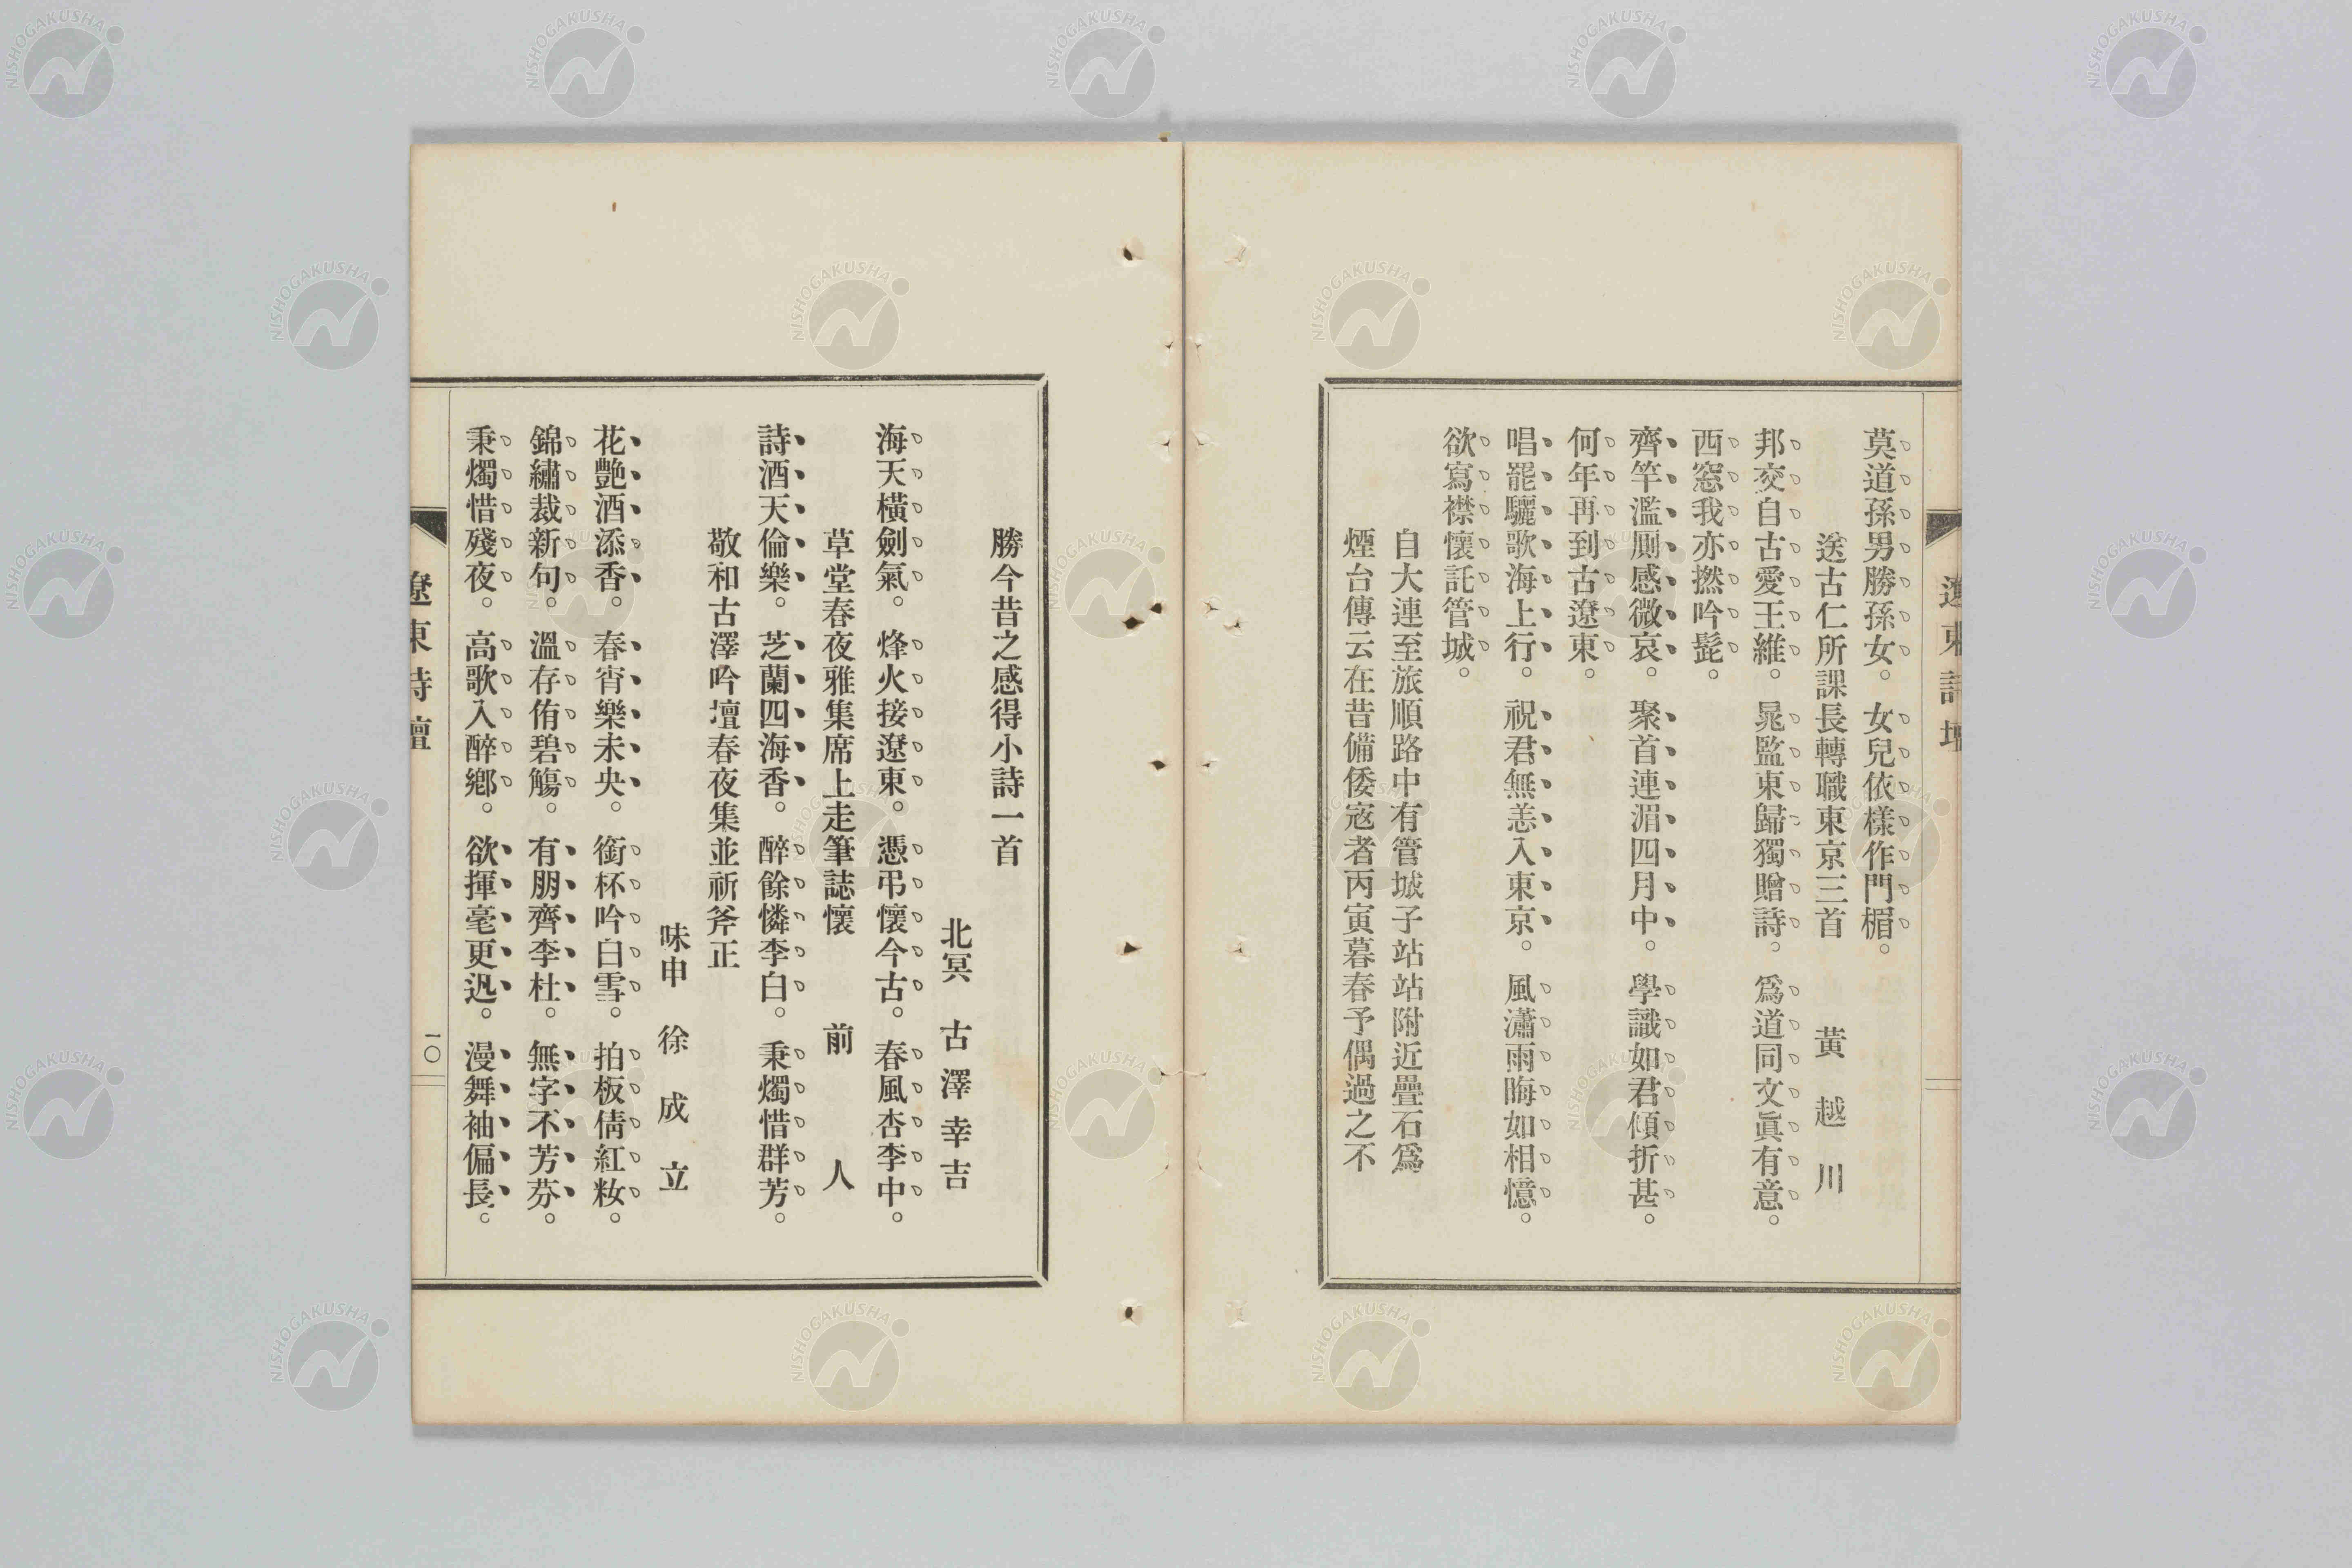 遼東詩壇
莫道孫男勝孫女。女兒依樣作門楣。
送古仁所課長轉職東京三首　黃越川
邦交自古愛王維。晁監東歸獨贈詩。爲道同文眞有意。
西窓我亦撚吟髭。
齊竽濫厠感微哀。聚首連湄四月中。學識如君傾折甚。
何年再到古遼東。
唱罷驪歌海上行。祝君無恙入東京。風瀟雨晦如相憶。
欲寫襟懷託管城。
自大連至旅順路中有管城子站站附近疊石爲
煙台傳云在昔備倭寇者丙寅暮春予偶過之不
勝今昔之感得小詩一首
北冥　古澤幸吉
海天橫劍氣。烽火接遼東。憑弔懷今古。春風杏李中。
草堂春夜雅集席上走筆誌懷　前人
詩酒天倫樂。芝蘭四海香。醉餘憐李白。秉燭惜群芳。
敬和古澤吟壇春夜集並祈斧正
味申　徐成立
花艷酒添香。春宵樂未央。銜杯吟白雪。拍板倩紅妝。
錦繡裁新句。溫存侑碧觴。有朋齊李杜。無字不芳芬。
秉燭惜殘夜。高歌入醉鄉。欲揮毫更迅。漫舞袖偏長。
遼東詩壇
一〇
NISHOGAKUSHA